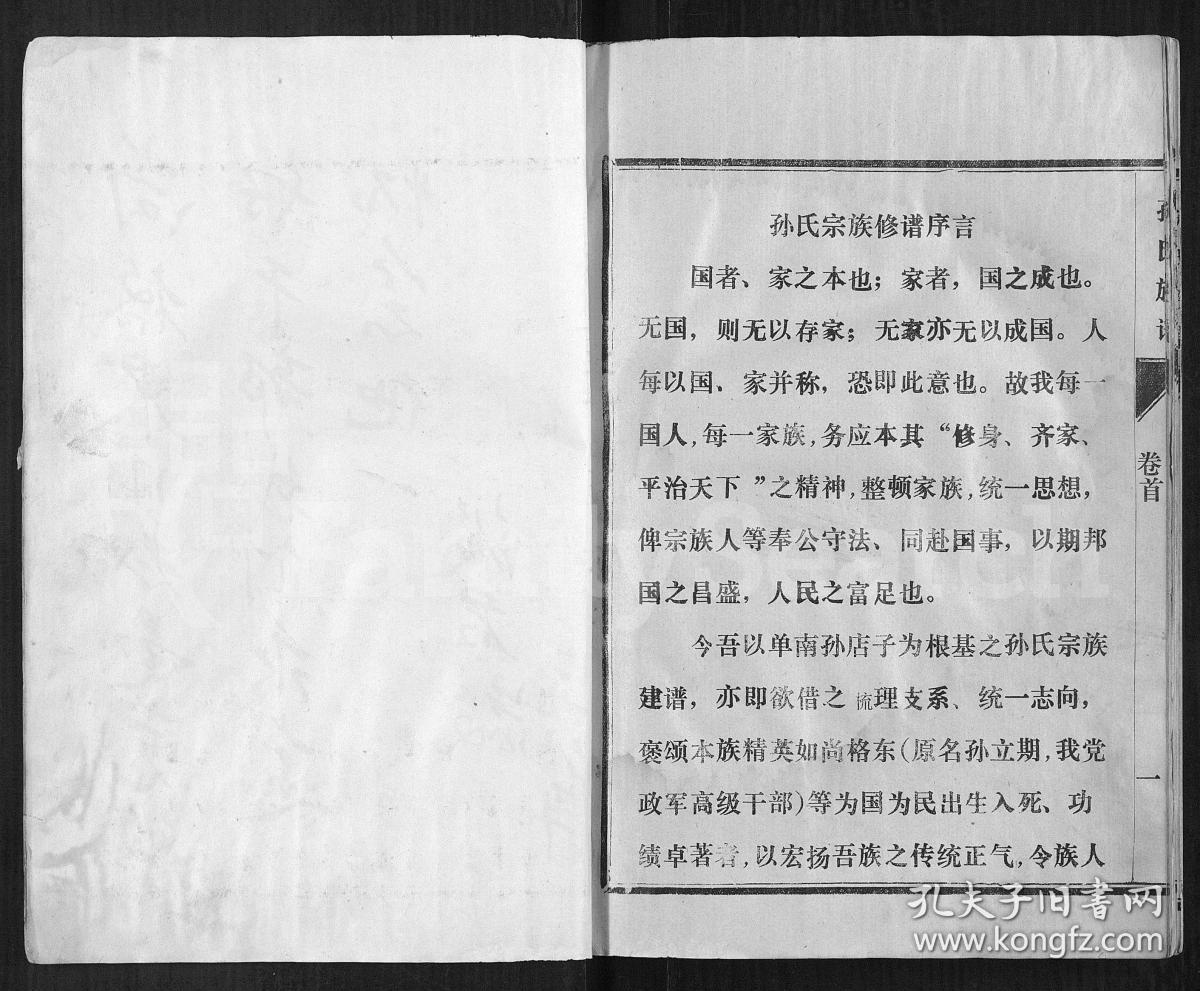 孙氏宗族修谱序言
国者、家之本也；家者，国之成也。
无国，则无以存家；无家亦无以成国。人
每以国、家并称，恐即此意也。故我每一
国人，每一家族，务应本其“修身、齐家、
平治天下”之精神，整顿家族，统一思想，
俾宗族人等奉公守法、同赴国事，以期邦
国之昌盛，人民之富足也。
今吾以单南孙店子为根基之孙氏宗族
建谱，亦即欲借之梳理支系、统一志向，
褒颂本族精英如尚格东（原名孙立期，我党
政军高级干部）等为国为民出生入死、功
绩卓著者，以宏扬吾族之传统正气，令族人
孙氏族谱
卷首
一
孔夫子旧书网
www.kongfz.com